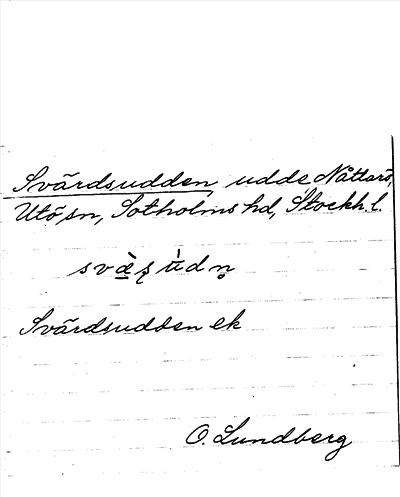 Svärdsudden, udde Nåttarö,
Utö sn, Sotholms hd, Stockh. l.
Svärdsudden ek
O. Lundberg